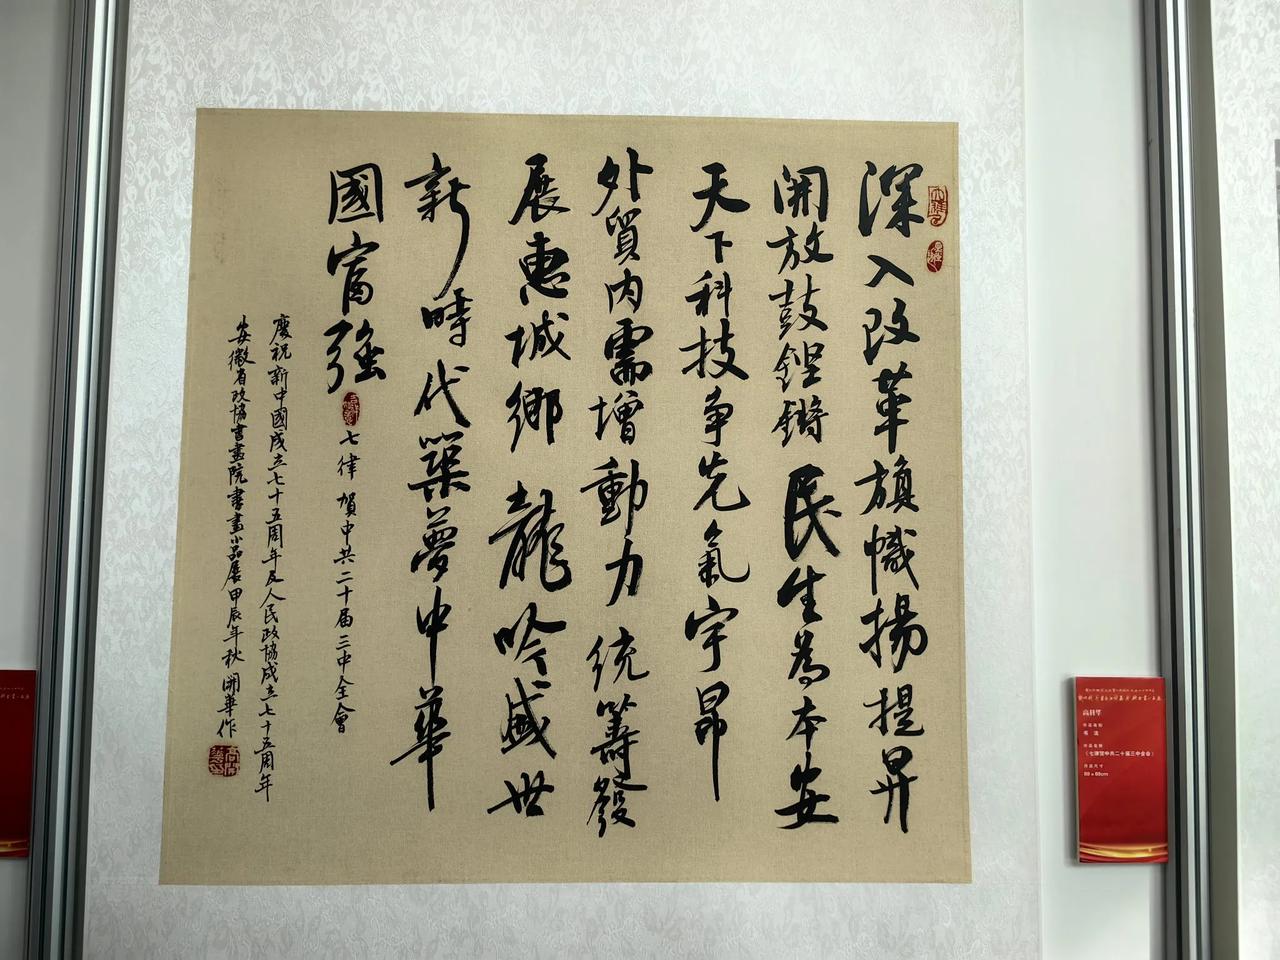 深入改革旗幟揚提昇
開放鼓鏗鏘民生為本安
天下科技争先氣宇昂
外貿内需增動力統籌發
展惠城鄉龍吟盛世
新時代築夢中華
國富强
七律賀中共二十届三中全會
慶祝新中國成立七十五周年及人民政協成立七十五周年
安徽省政協書畫院書畫小品展甲辰年秋開華作
高開華
作品类别
书法
作品名称
《七律贺中共二十届三中全会》
作品尺寸
69×69cm